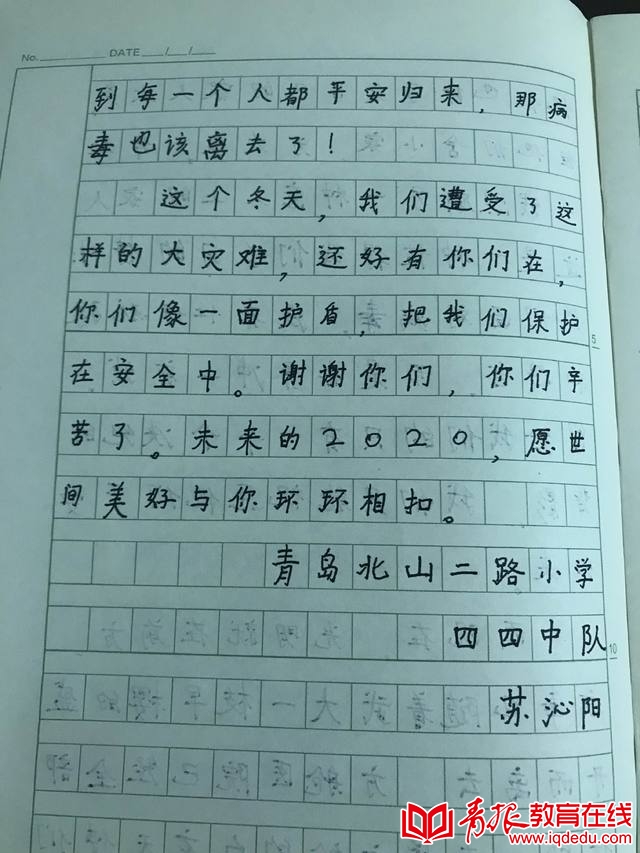 No. DATE / /
到每一个人都平安归来，那病
毒也该离去了！
这个冬天，我们遭受了这
样的大灾难，还好有你们在，
你们像一面护盾，把我们保护
5
在安全中。谢谢你们，你们辛
苦了。未来的2020，愿世
间美好与你环环相扣。
青岛北山二路小学
四四中队
10
苏沁阳
青报教育在线
www.iqdedu.com